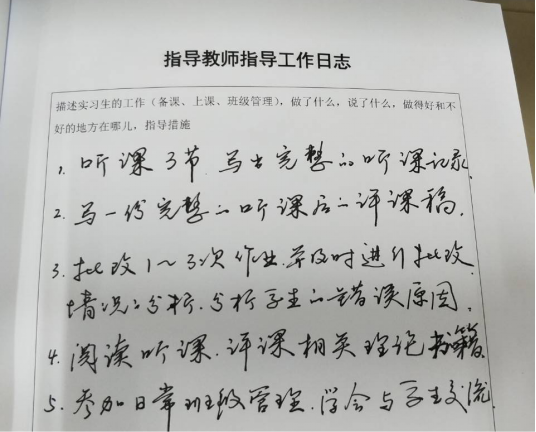 指导教师指导工作日志
描述实习生的工作（备课、上课、班级管理），做了什么，说了什么，做得好和不
好的地方在哪儿，指导措施
1. 听课3节 写出完整的听课记录.
2. 写一份完整的听课后的评课稿.
3. 批改1～3次作业.并及时进行批改
情况的分析.分析学生的错误原因.
4. 阅读听课.评课相关理论书籍.
5. 参加日常班级管理.学会与学生交流